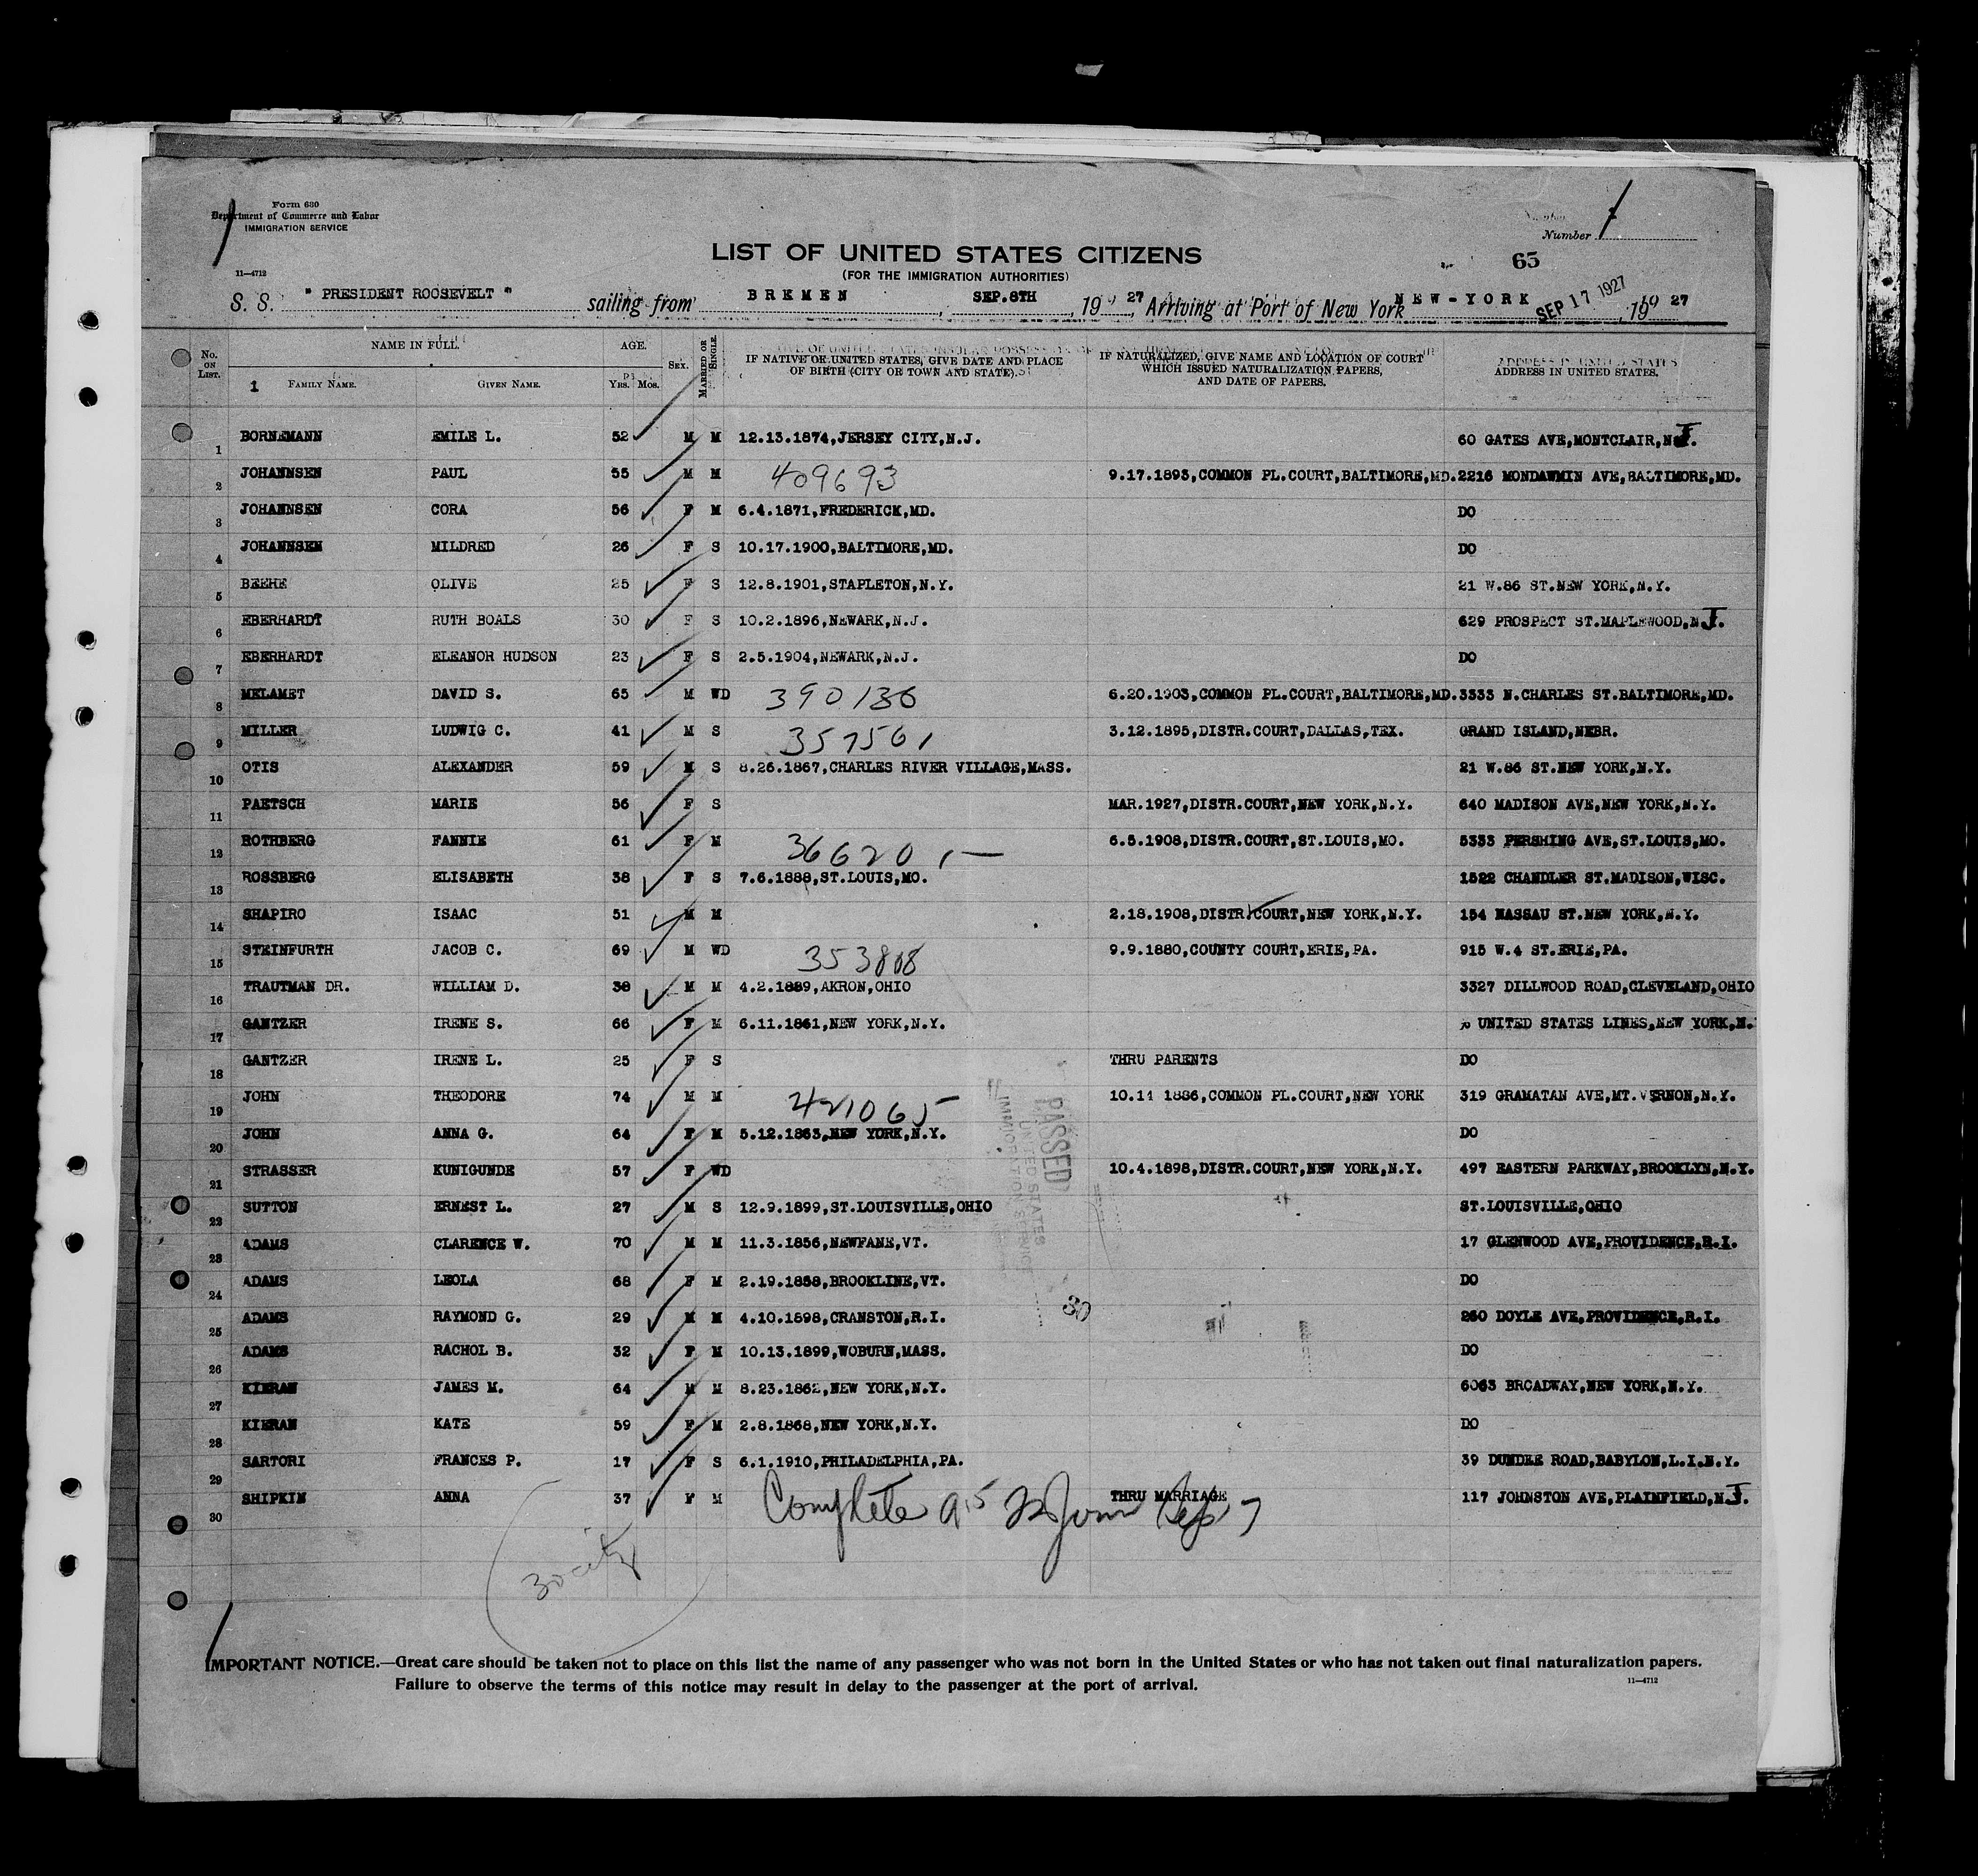 Form 630
Department of Commerce and Labor
IMMIGRATION SERVICE
Number
LIST OF UNITED STATES CITIZENS
(FOR THE IMMIGRATION AUTHORITIES)
65
11—4712
S. S. " PRESIDENT ROOSEVELT " sailing from BREMEN, SEP.8TH, 19 27, Arriving at Port of New York NEW-YORK SEP 17 1927, 19 27
No. ON LIST. NAME IN FULL. AGE. SEX. MARRIED OR SINGLE. IF NATIVE OF UNITED STATES, GIVE DATE AND PLACE OF BIRTH (CITY OR TOWN AND STATE). IF NATURALIZED, GIVE NAME AND LOCATION OF COURT WHICH ISSUED NATURALIZATION PAPERS, AND DATE OF PAPERS. ADDRESS IN UNITED STATES.
1 FAMILY NAME. GIVEN NAME. YRS. MOS.
1 BORNEMANN EMILE L. 52 M M 12.13.1874,JERSEY CITY,N.J. 60 GATES AVE,MONTCLAIR,N.J.
2 JOHANNSEN PAUL 55 M M 409693 9.17.1893,COMMON PL.COURT,BALTIMORE,MD. 2216 MONDAWMIN AVE,BALTIMORE,MD.
3 JOHANNSEN CORA 56 F M 6.4.1871,FREDERICK,MD. DO
4 JOHANNSEN MILDRED 26 F S 10.17.1900,BALTIMORE,MD. DO
5 BEEHE OLIVE 25 F S 12.8.1901,STAPLETON,N.Y. 21 W.86 ST.NEW YORK,N.Y.
6 EBERHARDT RUTH BOALS 30 F S 10.2.1896,NEWARK,N.J. 629 PROSPECT ST.MAPLEWOOD,N.J.
7 EBERHARDT ELEANOR HUDSON 23 F S 2.5.1904,NEWARK,N.J. DO
8 MELAMET DAVID S. 65 M WD 390136 6.20.1903,COMMON PL.COURT,BALTIMORE,MD. 3333 N.CHARLES ST.BALTIMORE,MD.
9 MILLER LUDWIG C. 41 M S 357561 3.12.1895,DISTR.COURT,DALLAS,TEX. GRAND ISLAND,NEBR.
10 OTIS ALEXANDER 59 M S 8.26.1867,CHARLES RIVER VILLAGE,MASS. 21 W.86 ST.NEW YORK,N.Y.
11 PAETSCH MARIE 56 F S MAR.1927,DISTR.COURT,NEW YORK,N.Y. 640 MADISON AVE,NEW YORK,N.Y.
12 ROTHBERG FANNIE 61 F M 366201— 6.5.1908,DISTR.COURT,ST.LOUIS,MO. 5333 PERSHING AVE,ST.LOUIS,MO.
13 ROSSBERG ELISABETH 38 F S 7.6.1888,ST.LOUIS,MO. 1522 CHANDLER ST.MADISON,WISC.
14 SHAPIRO ISAAC 51 M M 2.18.1908,DISTR.COURT,NEW YORK,N.Y. 154 NASSAU ST.NEW YORK,N.Y.
15 STEINFURTH JACOB C. 69 M WD 353808 9.9.1880,COUNTY COURT,ERIE,PA. 915 W.4 ST.ERIE,PA.
16 TRAUTMAN DR. WILLIAM D. 38 M M 4.2.1889,AKRON,OHIO 3327 DILLWOOD ROAD,CLEVELAND,OHIO
17 GANTZER IRENE S. 66 F M 6.11.1861,NEW YORK,N.Y. UNITED STATES LINES,NEW YORK,N.
18 GANTZER IRENE L. 25 F S THRU PARENTS DO
19 JOHN THEODORE 74 M M 421065 10.11 1886,COMMON PL.COURT,NEW YORK 319 GRAMATAN AVE,MT.VERNON,N.Y.
20 JOHN ANNA G. 64 F M 5.12.1863,NEW YORK,N.Y. DO
21 STRASSER KUNIGUNDE 57 F WD 10.4.1898,DISTR.COURT,NEW YORK,N.Y. 497 EASTERN PARKWAY,BROOKLYN,N.Y.
22 SUTTON ERNEST L. 27 M S 12.9.1899,ST.LOUISVILLE,OHIO ST.LOUISVILLE,OHIO
23 ADAMS CLARENCE W. 70 M M 11.3.1856,NEWFANE,VT. 17 GLENWOOD AVE,PROVIDENCE,R.I.
24 ADAMS LEOLA 68 F M 2.19.1858,BROOKLINE,VT. DO
25 ADAMS RAYMOND G. 29 M M 4.10.1898,CRANSTON,R.I. 260 DOYLE AVE,PROVIDENCE,R.I.
26 ADAMS RACHOL B. 32 F M 10.13.1899,WOBURN,MASS. DO
27 KIERAN JAMES M. 64 M M 8.23.1862,NEW YORK,N.Y. 6063 BROADWAY,NEW YORK,N.Y.
28 KIERAN KATE 59 F M 2.8.1868,NEW YORK,N.Y. DO
29 SARTORI FRANCES P. 17 F S 6.1.1910,PHILADELPHIA,PA. 39 DUNDEE ROAD,BABYLON,L.I.N.Y.
30 SHIPKIN ANNA 37 F M THRU MARRIAGE 117 JOHNSTON AVE,PLAINFIELD,N.J.
PASSED
UNITED STATES
IMMIGRATION SERVICE
30
Complete
30 city
IMPORTANT NOTICE.—Great care should be taken not to place on this list the name of any passenger who was not born in the United States or who has not taken out final naturalization papers.
Failure to observe the terms of this notice may result in delay to the passenger at the port of arrival.
11—4712